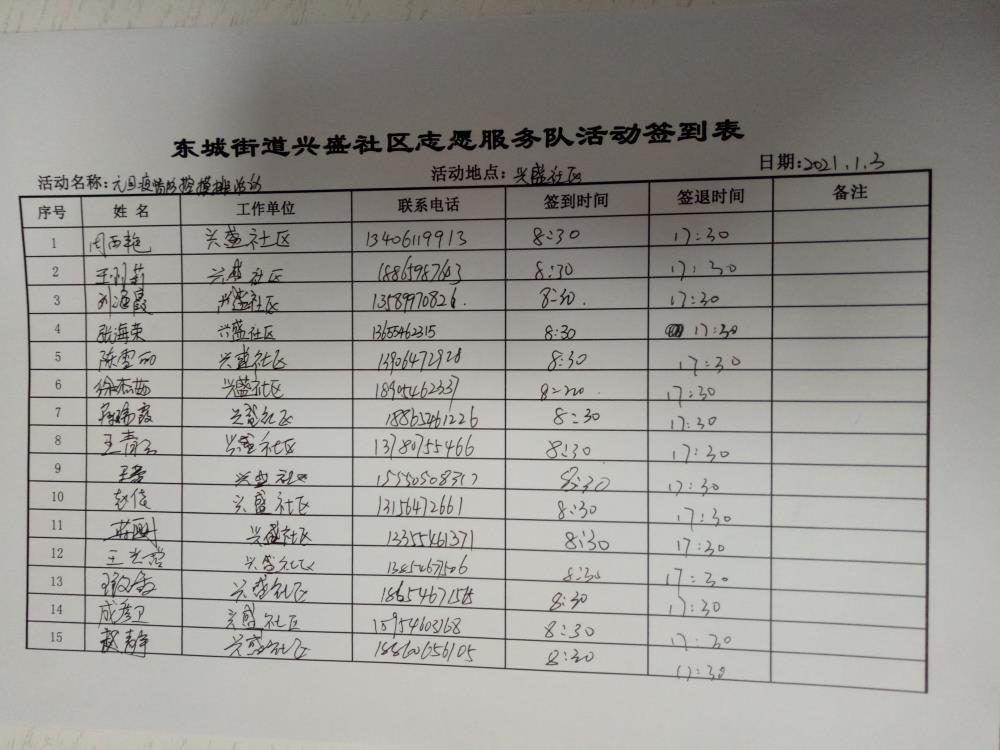 东城街道兴盛社区志愿服务队活动签到表
活动名称:元旦疫情防控摸排活动 活动地点:兴盛社区 日期:2021.1.3
序号 姓名 工作单位 联系电话 签到时间 签退时间 备注
1 周西艳 兴盛社区 13406119913 8:30 17:30
2 兴盛社区 8:30 17:30
3 刘海霞 兴盛社区 13589970826. 8:30. 17:30
4 张海荣 兴盛社区 13655462315 8:30 17:30
5 陈雪丽 兴盛社区 13906472928 8:30 17:30
6 兴盛社区 18905462337 17:30
7 兴盛社区 18865461226 8:30 17:30
8 兴盛社区 13780755466 8:30 17:30
9 兴盛社区 8:30 17:30
10 赵俊 兴盛社区 13156472661 8:30 17:30
11 兴盛社区 13355461371 8:30 17:30
12 兴盛社区 8:30 17:30
13 兴盛社区 8:30 17:30
14 成彦卫 兴盛社区 15954603168 8:30 17:30
15 赵静 兴盛社区 18860656105 8:30 17:30